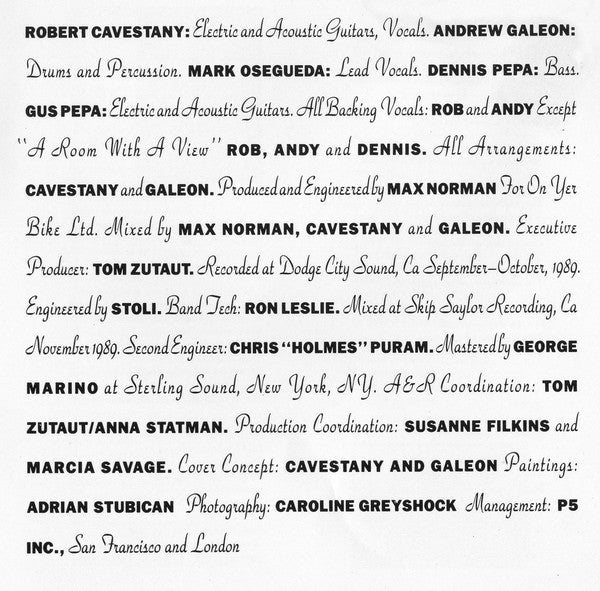 ROBERT CAVESTANY: Electric and Acoustic Guitars, Vocals. ANDREW GALEON:
Drums and Percussion. MARK OSEGUEDA: Lead Vocals. DENNIS PEPA: Bass.
GUS PEPA: Electric and Acoustic Guitars. All Backing Vocals: ROB and ANDY Except
"A Room With A View" ROB, ANDY and DENNIS. All Arrangements:
CAVESTANY and GALEON. Produced and Engineered by MAX NORMAN For On Yer
Bike Ltd. Mixed by MAX NORMAN, CAVESTANY and GALEON. Executive
Producer: TOM ZUTAUT. Recorded at Dodge City Sound, Ca September–October, 1989.
Engineered by STOLI. Band Tech: RON LESLIE. Mixed at Skip Saylor Recording, Ca
November 1989. Second Engineer: CHRIS "HOLMES" PURAM. Mastered by GEORGE
MARINO at Sterling Sound, New York, NY. A&R Coordination: TOM
ZUTAUT/ANNA STATMAN. Production Coordination: SUSANNE FILKINS and
MARCIA SAVAGE. Cover Concept: CAVESTANY AND GALEON Paintings:
ADRIAN STUBICAN Photography: CAROLINE GREYSHOCK Management: P5
INC., San Francisco and London